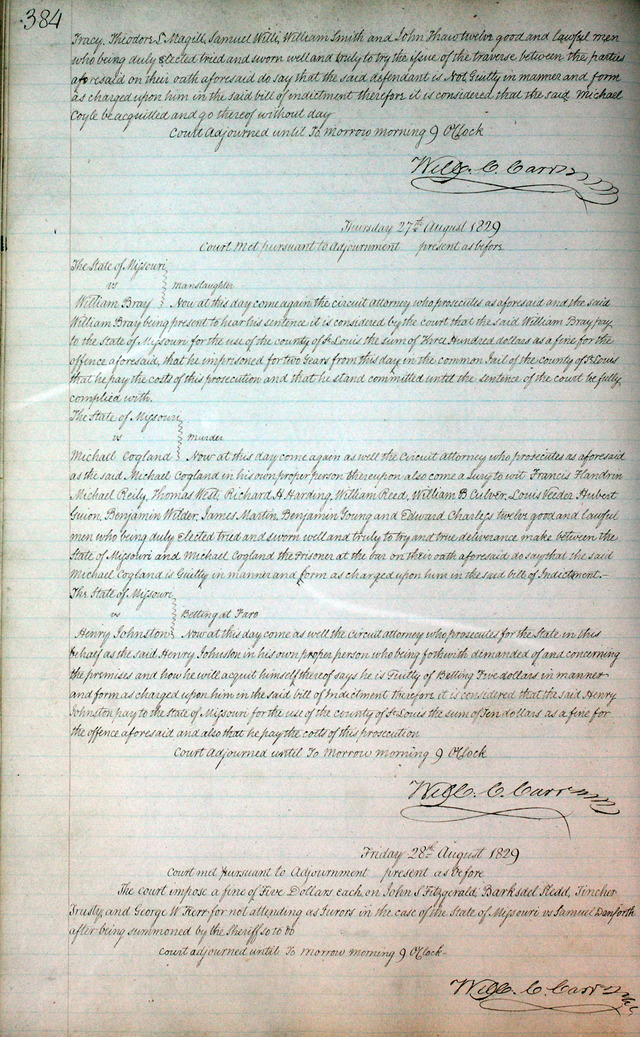 384
Tracy, Theodore S Magill, Samuel Willi, William Smith and John Thaw twelve good and lawful men
who being duly elected tried and sworn well and truly to try the issue of the traverse between the parties
aforesaid on their oath aforesaid do say that the said defendant is Not Guilty in manner and form
as charged upon him in the said bill of indictment therefore it is considered that the said Michael
Coyle be acquitted and go thereof without day
Court Adjourned until To Morrow morning 9 OClock
Will. C. Carr
Thursday 27th August 1829
Court met pursuant to Adjournment present as before
The State of Missouri
vs Manslaughter
William Bray Now at this day come again the circuit attorney who prosecutes as aforesaid and the said
William Bray being present to hear his sentence it is considered by the court that the said William Bray pay
to the State of Missouri for the use of the county of St Louis the sum of Three Hundred dollars as a fine for the
offence aforesaid, that he imprisoned for two Years from this day in the common Jail of the county of St Louis
that he pay the costs of this prosecution and that he stand committed until the sentence of the court be fully
complied with.
The State of Missouri
vs Murder
Michael Cogland Now at this day come again as well the Circuit Attorney who prosecutes as aforesaid
as the said Michael Cogland in his own proper person thereupon also come a Jury to wit Francis Flandrin
Michael Reily, Thomas West, Richard H Harding, William Reed, William B Culver, Louis Veeder Hubert
Guion, Benjamin Wilder, James Martin, Benjamin Young and Edward Charless twelve good and lawful
men who being duly Elected tried and sworn well and truly to try and true deliverance make between the
State of Missouri and Michael Cogland the Prisoner at the bar on their oath aforesaid do say that the said
Michael Cogland is Guilty in manner and form as charged upon him in the said bill of Indictment.-
The State of Missouri
vs Betting at Faro
Henry Johnston Now at this day come as well the circuit attorney who prosecutes for the State in this
behalf as the said Henry Johnston in his own proper person who being forth with demanded of and concerning
the premises and how he will acquit himself thereof says he is Guilty of Betting Five dollars in manner
and form as charged upon him in the said bill of Indictment therefore it is considered that the said Henry
Johnston pay to the State of Missouri for the use of the county of St Louis the sum of Ten dollars as a fine for
the offence aforesaid and also that he pay the costs of this prosecution
Court Adjourned until To Morrow morning 9 OClock
Will. C. Carr
Friday 28th August 1829
Court met pursuant to Adjournment present as before
The court impose a fine of Five Dollars each on John S Fitzgerald, Barksdel Sledd, Tincher
Trusty, and George W Kerr for not attending as Jurors in the case of the State of Missouri vs Samuel Danforth
after being summoned by the Sheriff so to do
Court adjourned until To morrow morning 9 OClock-
Will. C. Carr